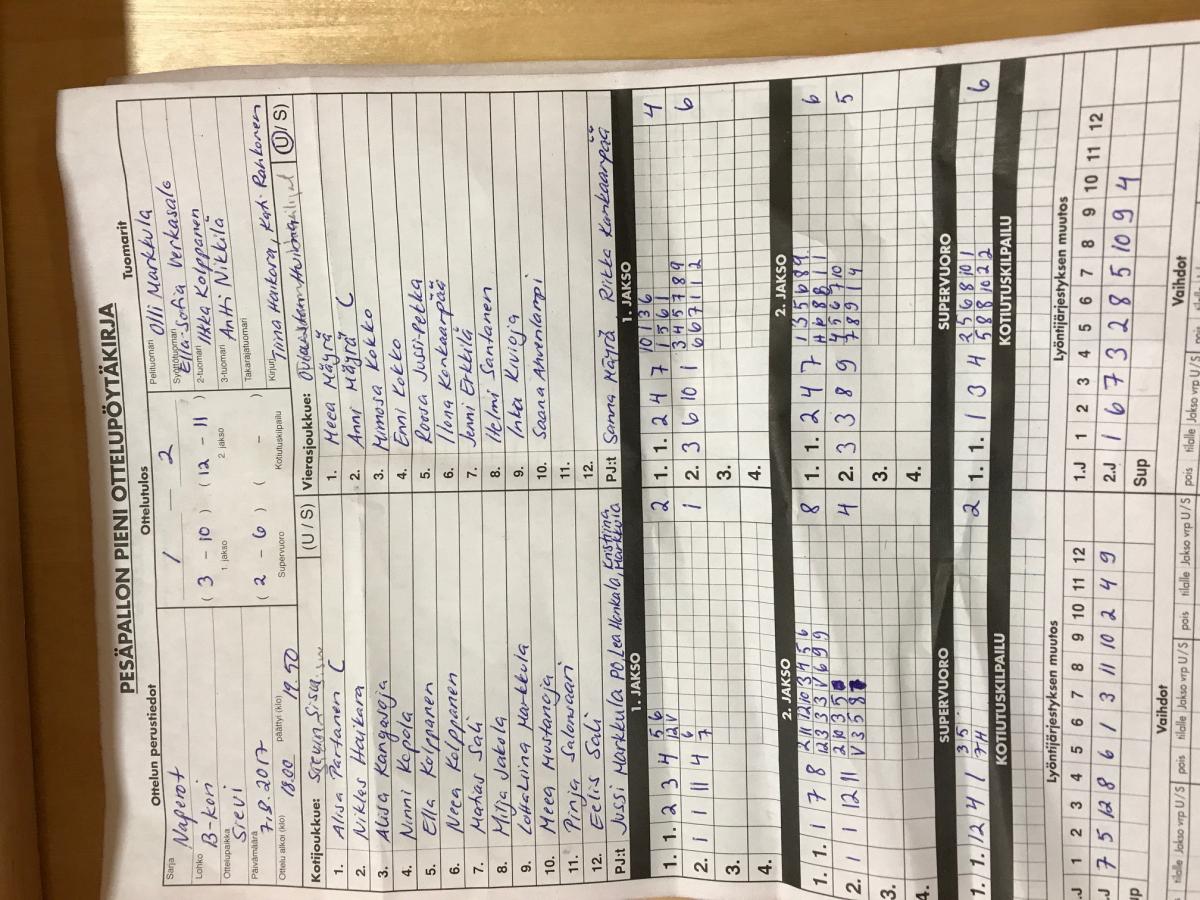 PESÄPALLON PIENI OTTELUPÖYTÄKIRJA
Ottelun perustiedot
Ottelutulos
Tuomarit
Sarja Naperot
Lohko B-kori
Ottelupaikka Sievi
Päivämäärä 7.8.2017
Ottelu alkoi (klo) 18.00 päättyi (klo) 19.50
1 — 2
( 3 - 10 ) ( 12 - 11 )
1. jakso 2. jakso
( 2 - 6 ) ( - )
Supervuoro Kotiutuskilpailu
Pelituomari Olli Markkula
Syöttötuomari Ella-Sofia Verkasalo
2-tuomari Ilkka Kolppanen
3-tuomari Antti Nikkilä
Takarajatuomari
Kirjuri Tiina Haikara, Kati Rahkonen
Kotijoukkue: Sievin Sisu (U / S)
1. Alisa Partanen C
2. Niklas Haikara
3. Aliisa Kangasoja
4. Ninni Kopola
5. Ella Kolppanen
6. Neea Kolppanen
7. Matias Sali
8. Milja Jakola
9. LottaLiina Markkula
10. Meea Mustanoja
11. Pinja Salonsaari
12. Eelis Sali
PJ:t Jussi Markkula PO, Lea Honkala, Kristiina Markkula
Vierasjoukkue: (U / S)
1. Meea Mäyrä
2. Anni Mäyrä C
3. Mimosa Kokko
4. Enni Kokko
5. Roosa Jussi-Pekka
6. Ilona Konkaarpää
7. Jenni Erkkilä
8. Helmi Santanen
9. Inka Kivioja
10. Saana Ahvenlampi
11.
12.
PJ:t Sanna Mäyrä Riikka Kankaarpää
1. JAKSO
1. 1. 2 3 4 5 6 2
12 V
2. 1 1 11 4 6 1
7
3.
4.
1. JAKSO
1. 1. 2 4 7 10 1 3 6 4
1 5 6 1
2. 3 6 10 1 3 4 5 7 8 9 6
6 6 7 1 1 2
3.
4.
2. JAKSO
1. 1. 1 7 8 2 11 12 10 3 4 5 6 8
12 3 3 3 V 6 9 9
2. 1 1 12 11 2 10 3 5 4
V 3 5 8
3.
4.
2. JAKSO
1. 1. 2 4 7 1 3 5 6 8 9 6
2. 3 3 8 9 4 5 6 7 10 5
7 8 9 1 4
3.
4.
SUPERVUORO
1. 1. 12 4 1 3 5 2
7 H
SUPERVUORO
1. 1. 1 3 4 2 5 6 8 10 1 6
5 8 8 10 2 2
KOTIUTUSKILPAILU
KOTIUTUSKILPAILU
Lyöntijärjestyksen muutos
.J 1 2 3 4 5 6 7 8 9 10 11 12
.J 7 5 12 8 6 1 3 11 10 2 4 9
up
Lyöntijärjestyksen muutos
1.J 1 2 3 4 5 6 7 8 9 10 11 12
2.J 1 6 7 3 2 8 5 10 9 4
Sup
Vaihdot
tilalle Jakso vrp U / S pois tilalle Jakso vrp U / S pois tilalle Jakso vrp U / S
Vaihdot
pois tilalle Jakso vrp U / S pois